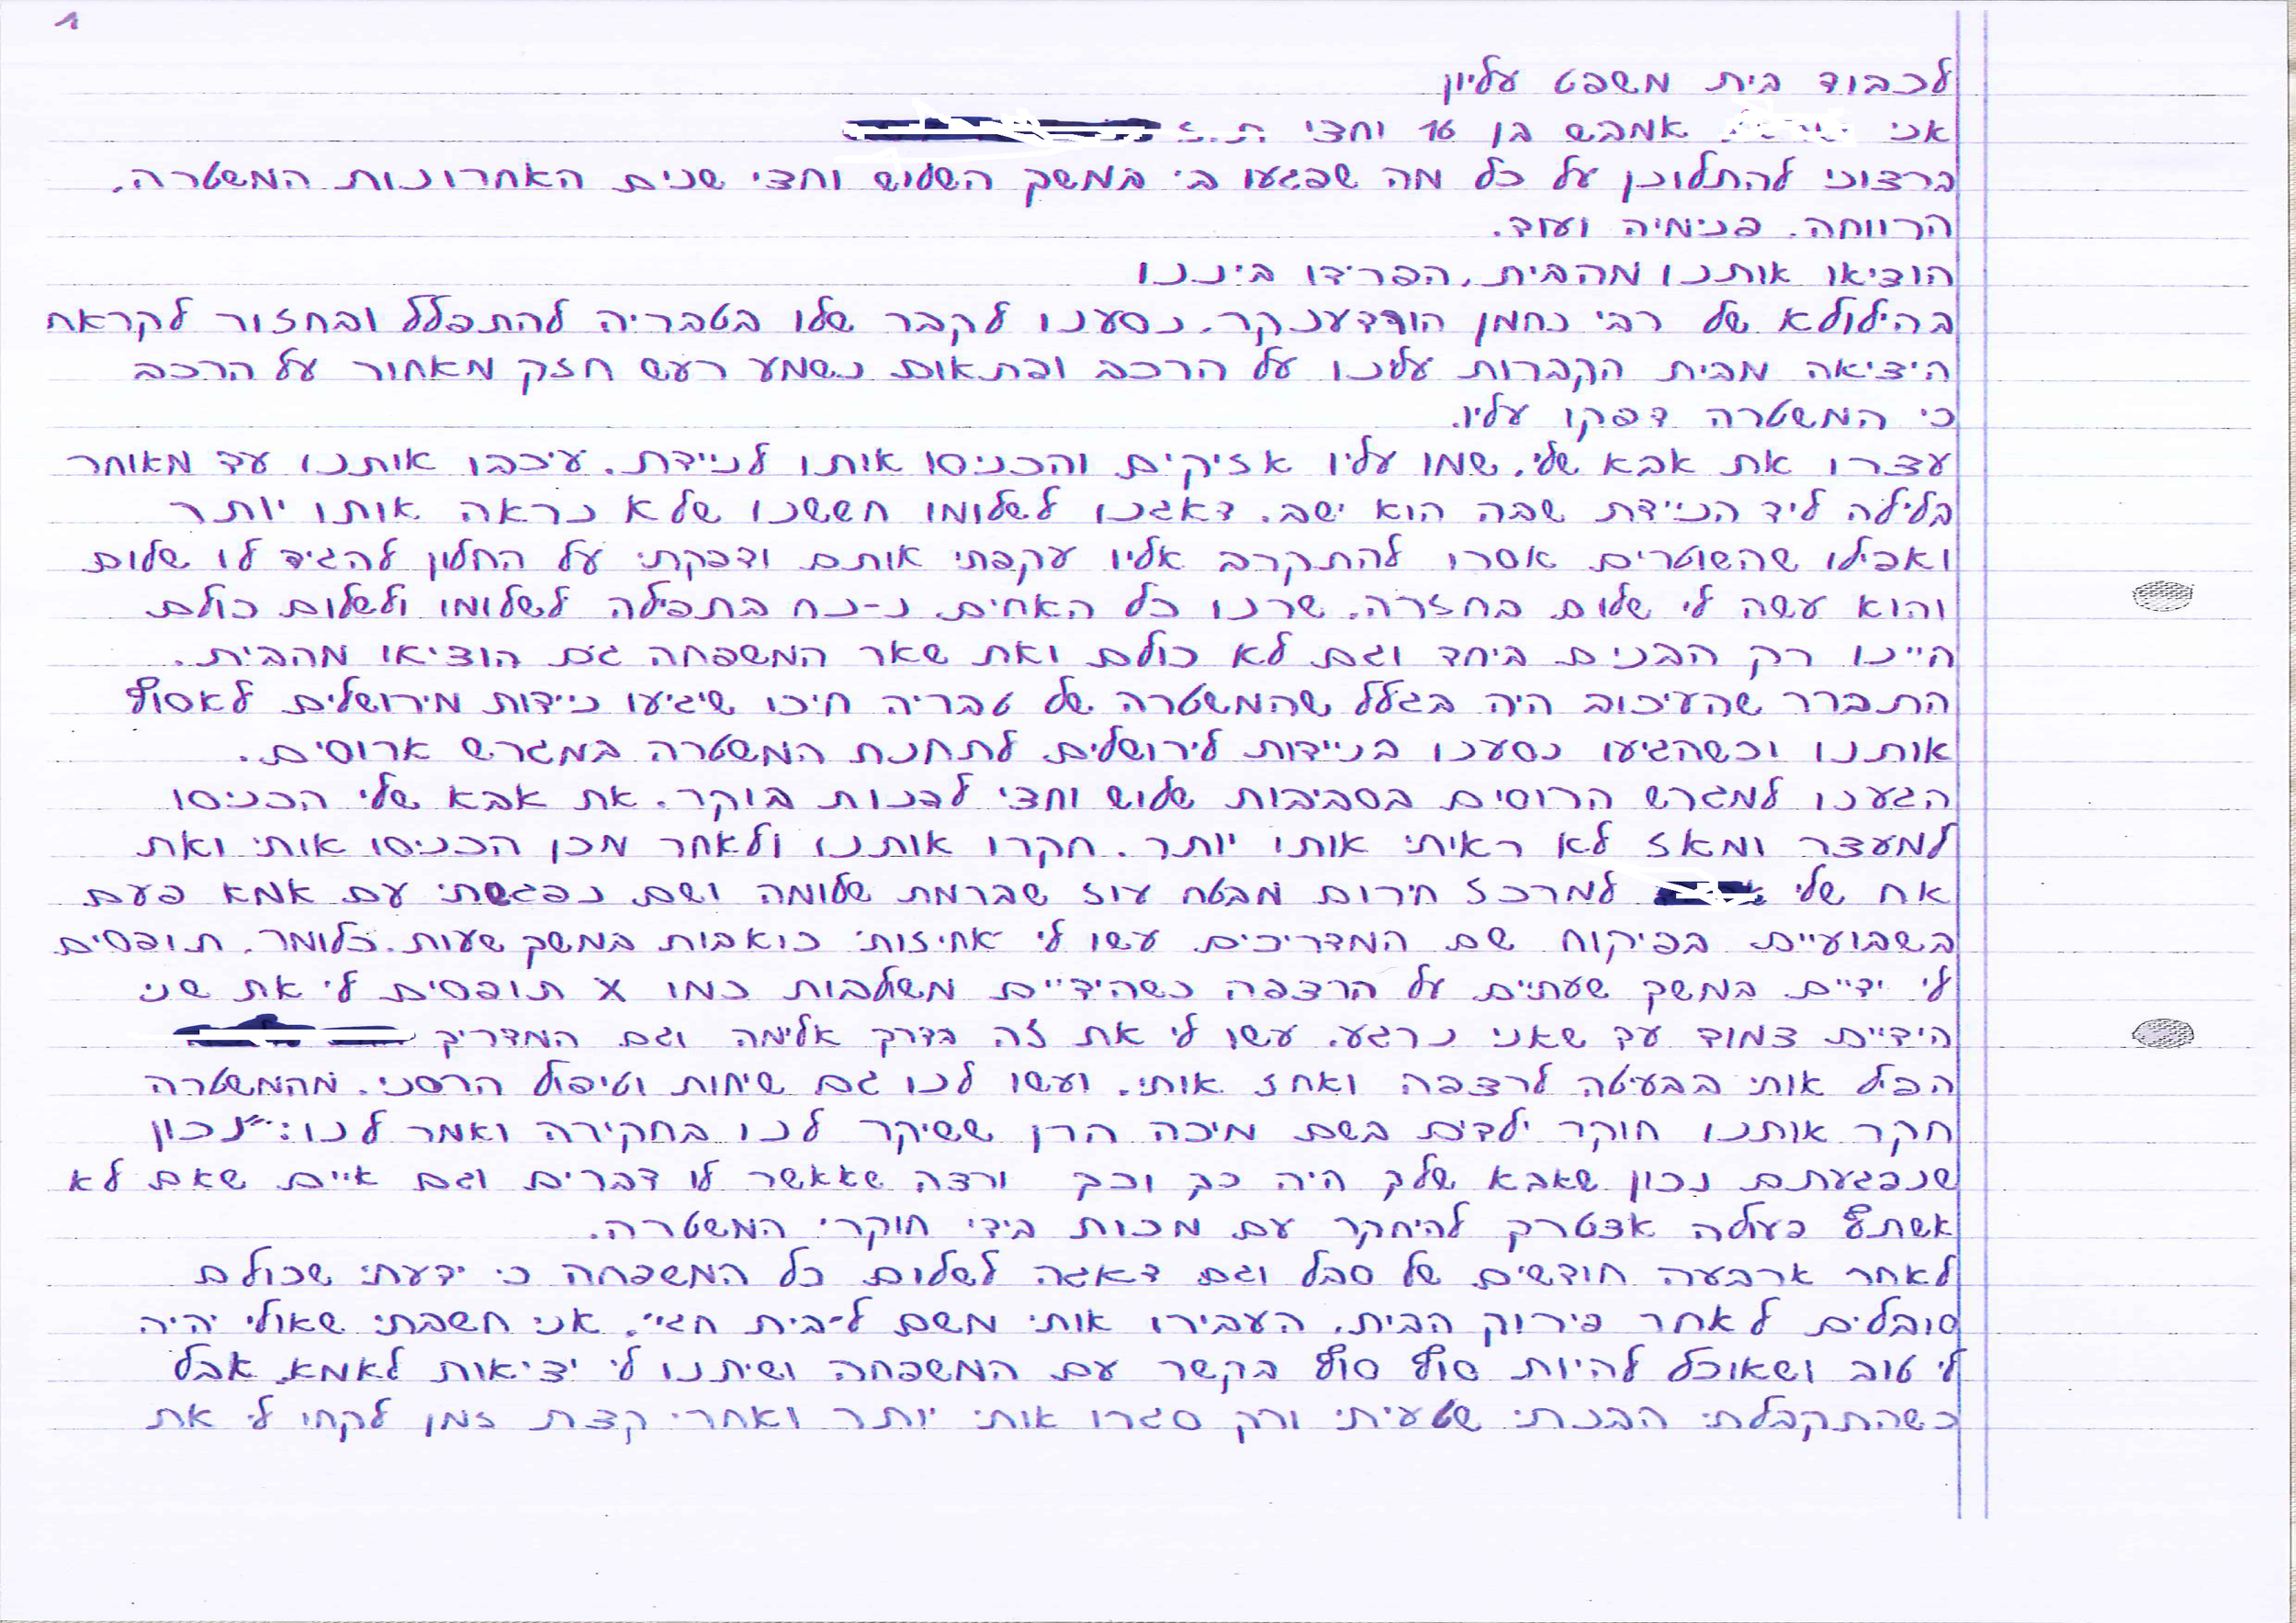 1
לכבוד בית משפט עליון
אני אמבש בן 16 וחצי ת.ז
ברצוני להתלונן על כל מה שפגעו בי במשך השלוש וחצי שנים האחרונות המשטרה,
הרווחה, פנימיה ועוד.
הוציאו אותנו מהבית, הפרידו ביננו
בהילולא של רבי נחמן הורדענקר, נסענו לקבר שלו בטבריה להתפלל ובחזור לקראת
היציאה מבית הקברות עלינו על הרכב ופתאום נשמע רעש חזק מאחור על הרכב
כי המשטרה דפקו עליו.
עצרו את אבא שלי, שמו עליו אזיקים והכניסו אותו לניידת, עיכבו אותנו עד מאוחר
בלילה ליד הניידת שבה הוא ישב, דאגנו לשלומו חששנו שלא נראה אותו יותר
ואפילו שהשוטרים אסרו להתקרב אליו עקפתי אותם ודפקתי על החלון להגיד לו שלום
והוא עשה לי שלום בחזרה, שרנו כל האחים נ-נח בתפילה לשלומו ולשלום כולם
היינו רק הבנים ביחד וגם לא כולם ואת שאר המשפחה גם הוציאו מהבית.
התברר שהעיכוב היה בגלל שהמשטרה של טבריה חיכו שיגיעו ניידות מירושלים לאסוף
אותנו וכשהגיעו נסענו בניידות לירושלים לתחנת המשטרה במגרש ארוסים.
הגענו למגרש הרוסים בסביבות שלוש וחצי לפנות בוקר. את אבא שלי הכניסו
למעצר ומאז לא ראיתי אותו יותר. חקרו אותנו ולאחר מכן הכניסו אותי ואת
אח שלי למרכז חירום מבטח עוז שברמת שלומה ושם נפגשתי עם אמא פעם
בשבועיים בפיקוח שם המדריכים עשו לי אחיזות כואבות במשך שעות. כלומר, תופסים
לי ידיים במשך שעתיים על הרצפה כשהידיים משולבות כמו X תופסים לי את שני
הידיים צמוד עד שאני נרגע, עשו לי את זה בדרך אלימה וגם המדריך
הפיל אותי בבעיטה לרצפה ואחז אותי, ועשו לנו גם שיחות וטיפול הרסני, מהמשטרה
חקר אותנו חוקר ילדים בשם מיכה הרן ששיקר לנו בחקירה ואמר לנו: "נכון
שנפגעתם נכון שאבא שלך היה כך וכך ורצה שאאשר לו דברים וגם איים שאם לא
אשתף פעולה אצטרך להיחקר עם מכות בידי חוקרי המשטרה.
לאחר ארבעה חודשים של סבל וגם דאגה לשלום כל המשפחה כי ידעתי שכולם
סובלים לאחר פירוק הבית, העבירו אותי משם ל"בית חגי", אני חשבתי שאולי יהיה
לי טוב ושאוכל להיות סוף סוף בקשר עם המשפחה ושיתנו לי יציאות לאמא, אבל
כשהתקבלתי הבנתי שטעיתי ורק סגרו אותי יותר ואחרי קצת זמן לקחו לי את